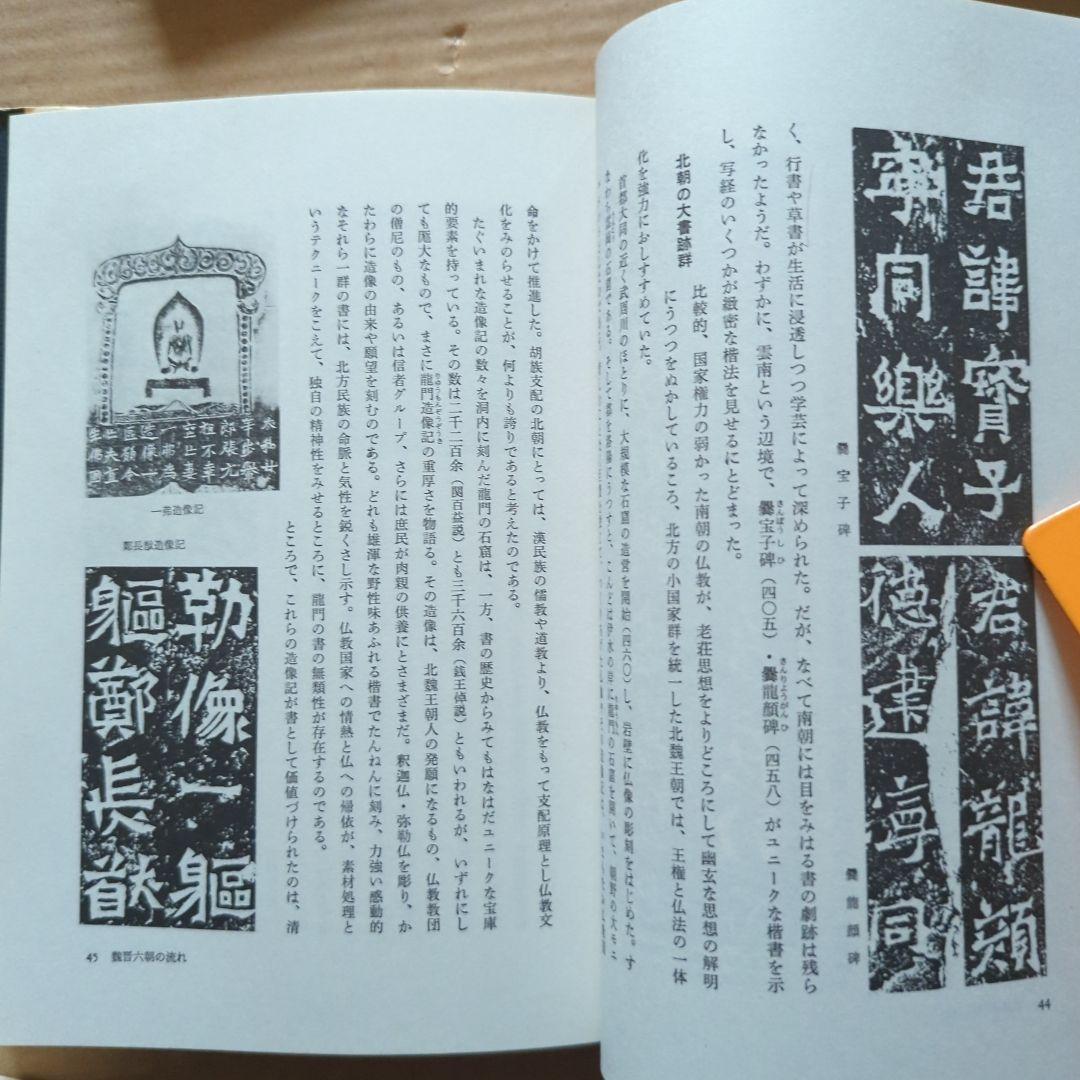 君諱寶子
寧同樂人
爨宝子碑
君諱龍顔
德建寧同
爨龍顔碑
く、行書や草書が生活に浸透しつつ学芸によって深められた。だが、なべて南朝には目をみはる書の劇跡は残ら
なかったようだ。わずかに、雲南という辺境で、爨宝子碑（四〇五）・爨龍顔碑（四五八）がユニークな楷書を示
さんぽうしひ
さんりようがんひ
し、写経のいくつかが緻密な楷法を見せるにとどまった。
北朝の大書跡群
比較的、国家権力の弱かった南朝の仏教が、老荘思想をよりどころにして幽玄な思想の解明
にうつつをぬかしているころ、北方の小国家群を統一した北魏王朝では、王権と仏法の一体
化を強力におしすすめていた。
首都大同の近く武周川のほとりに、大規模な石窟の造営を開始（四六〇）し、岩壁に仏像の彫刻をはじめた。す
44
命をかけて推進した。胡族支配の北朝にとっては、漢民族の儒教や道教より、仏教をもって支配原理とし仏教文
化をみのらせることが、何よりも誇りであると考えたのである。
たぐいまれな造像記の数々を洞内に刻んだ龍門の石窟は、一方、書の歴史からみてもはなはだユニークな宝庫
的要素を持っている。その数は二千二百余（関百益説）とも三千六百余（銭王倬説）ともいわれるが、いずれにし
ても厖大なもので、まさに龍門造像記の重厚さを物語る。その造像は、北魏王朝人の発願になるもの、仏教教団
りゆうもんぞうぞうき
の僧尼のもの、あるいは信者グループ、さらには庶民が肉親の供養にとさまざまだ。釈迦仏・弥勒仏を彫り、か
たわらに造像の由来や願望を刻むのである。どれも雄渾な野性味あふれる楷書でたんねんに刻み、力強い感動的
なそれら一群の書には、北方民族の命脈と気性を鋭くさし示す。仏教国家への情熱と仏への帰依が、素材処理と
いうテクニークをこえて、独自の精神性をみせるところに、龍門の書の無類性が存在するのである。
ところで、これらの造像記が書として価値づけられたのは、清
一弗造像記
鄭長猷造像記
勒像一軀
軀鄭長猷
45 魏晋六朝の流れ